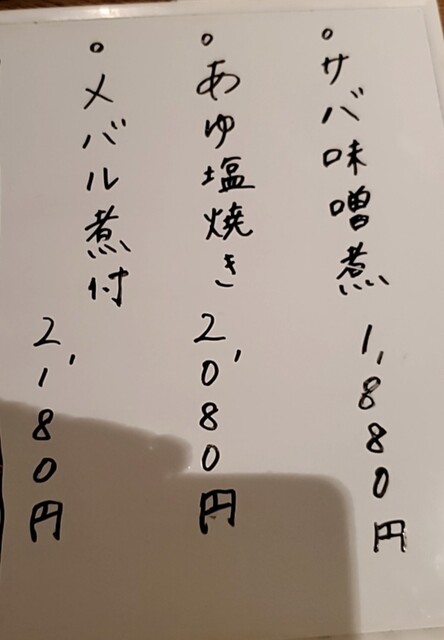 ○サバ味噌煮 1,880円
○あゆ塩焼き 2,080円
○メバル煮付 2,180円